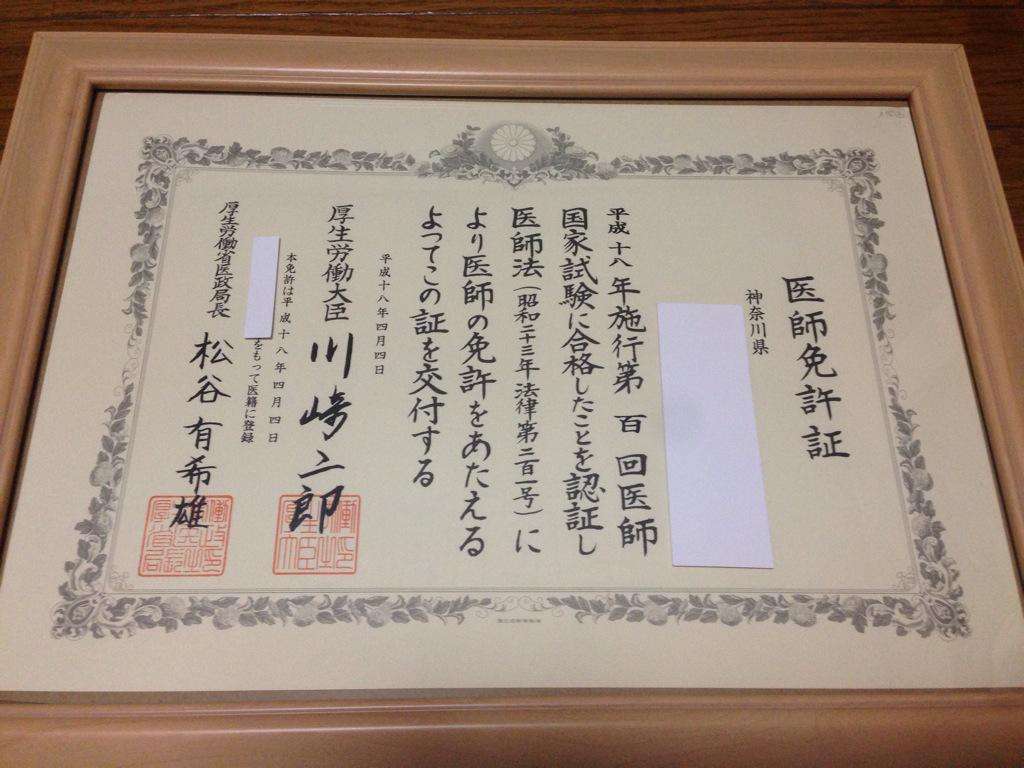 医師免許証
神奈川県
平成十八年施行第百回医師
国家試験に合格したことを認証し
医師法(昭和二十三年法律第二百一号)に
より医師の免許をあたえる
よってこの証を交付する
平成十八年四月四日
厚生労働大臣 川崎二郎
本免許は平成十八年四月四日
をもって医籍に登録
厚生労働省医政局長 松谷有希雄